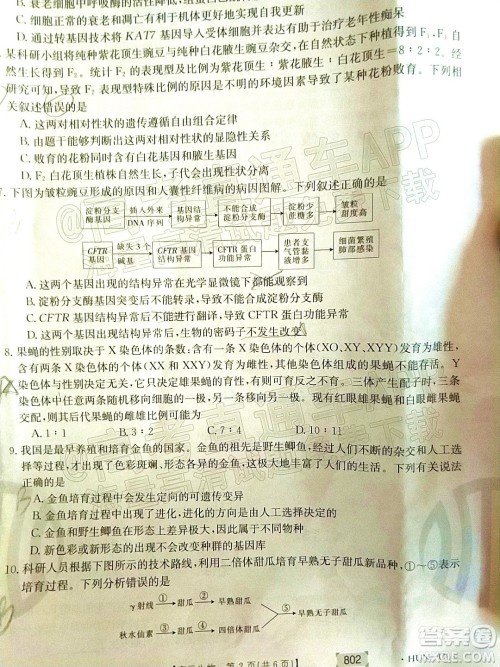 B. 衰老细胞中呼吸酶的活性降低,
C. 正常细胞的衰老和凋亡有利于机体更好地实现自我更新
D. 通过转基因技术将 KAT7 基因导入受体细胞有助于治疗老年性痴呆
某科研小组将纯种紫花顶生豌豆与纯种白花腋生豌豆杂交,在自然条件下
得到 F₂。统计 F₂ 的表现型及比例为紫花顶生:紫花腋生:白花顶生=8:2:2。
研究可知,导致 F₂ 表现型特殊比例的原因是不明的环境因素导致了某种花粉败育。下列相
关叙述错误的是
A. 这两对相对性状的遗传遵循自由组合定律
B. 由题干能判断这两对相对性状的显隐性关系
C. 败育的花粉同时含有白花基因和腋生基因
D. F₂ 白花顶生植株自然生长,子代会出现性状分离
7. 下图为皱粒豌豆形成的原因和人囊性纤维病的病因图解。下列叙述正确的是
淀粉分支酶基因 插入外来DNA序列 基因结构异常 不能合成淀粉分支酶 淀粉少蔗糖多 皱粒甜度高
CFTR基因 缺失3个碱基 CFTR基因结构异常 CFTR蛋白功能异常 患者支气管黏液增多 细菌繁殖肺部感染
A. 这两个基因出现的结构异常在光学显微镜下都能观察到
B. 淀粉分支酶基因突变后不能转录,导致不能合成淀粉分支酶
C. CFTR 基因突变后不能进行翻译,导致 CFTR 蛋白功能异常
D. 这两个基因出现结构异常后,生物的密码子不发生改变
8. 果蝇的性别取决于 X 染色体的条数;含有一条 X 染色体的个体(XO、XY、XYY)发育为雄性,
含有两条 X 染色体的个体(XX 和 XXY)发育为雌性,其他染色体组成的果蝇胚胎致死。Y
染色体与雄果蝇的育性有关,缺失则表现为不育。三体果蝇在产生配子时,三条
染色体中任意两条移向细胞的一极,另外一条移向另一极。
配,其后代果蝇的雌雄比例可能为
A. 1:1 B. 10:7 C. 3:2 D. 3:1
9. 我国是最早养殖和培育金鱼的国家。金鱼的祖先是野生鲫鱼,经过人们不断的杂交和人工选
择,才出现了现在的色彩斑斓、形态各异的金鱼,大大地丰富了人们的生活。下列有关说法
正确的是
A. 金鱼培育过程中会发生定向的可遗传变异
B. 金鱼和野生鲫鱼在形态上差异大的原因是人工
C. 金鱼在形态上的改变有利于
D. 新色彩或新形态的出现不会改变该种群的基因库
10. 科研人员根据下图所示的技术路线,利用二倍体甜瓜培育早熟无子甜瓜新品种,①~⑤表示
培育过程。下列分析错误的是
γ射线 ① 甜瓜 ② 早熟甜瓜
⑤ 早熟无子甜瓜
秋水仙素 ③ 甜瓜 ④ 四倍体甜瓜
第 2 页(共 6 页)
802
· HUN ·